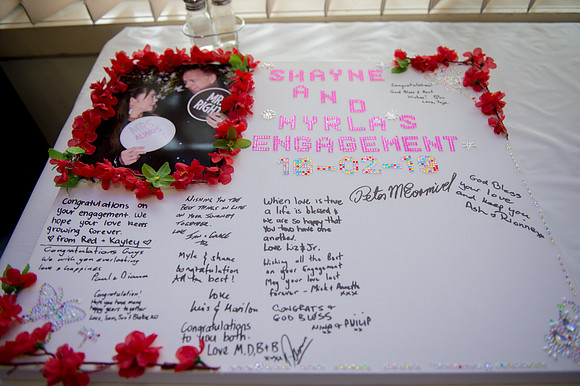 SHAYNE
AND
MYRLA'S
ENGAGEMENT
18-02-18
MR.
RIGHT
ALWAYS
Congratulations!
Congratulations on
your engagement. We
hope your love never
growing forever.
♡ from Red + Kayley ♡
Congratulations Guys
We wish you everlasting
love & happiness
Paul & Dianna
Congratulation!
years together
WISHING YOU THE
BEST THINGS IN LIFE
ON YOUR JOURNEY
TOGETHER.
LOVE
Myla & Shane
Congratulation
All the best!
Love
Luis & Marilou
Congratulations
to you both.
Love M,D,B+B
When love is true
a life is blessed &
we are so happy that
you two have one
another.
Love Liz & Jr.
Wishing all the Best
on your Engagement
May your love last
forever - Mick & Annette
xxx
CONGRATS &
GOD BLESS
NINA & PHILIP
Peter McCormick
God Bless
your love
and keep you
Ash & Dionne